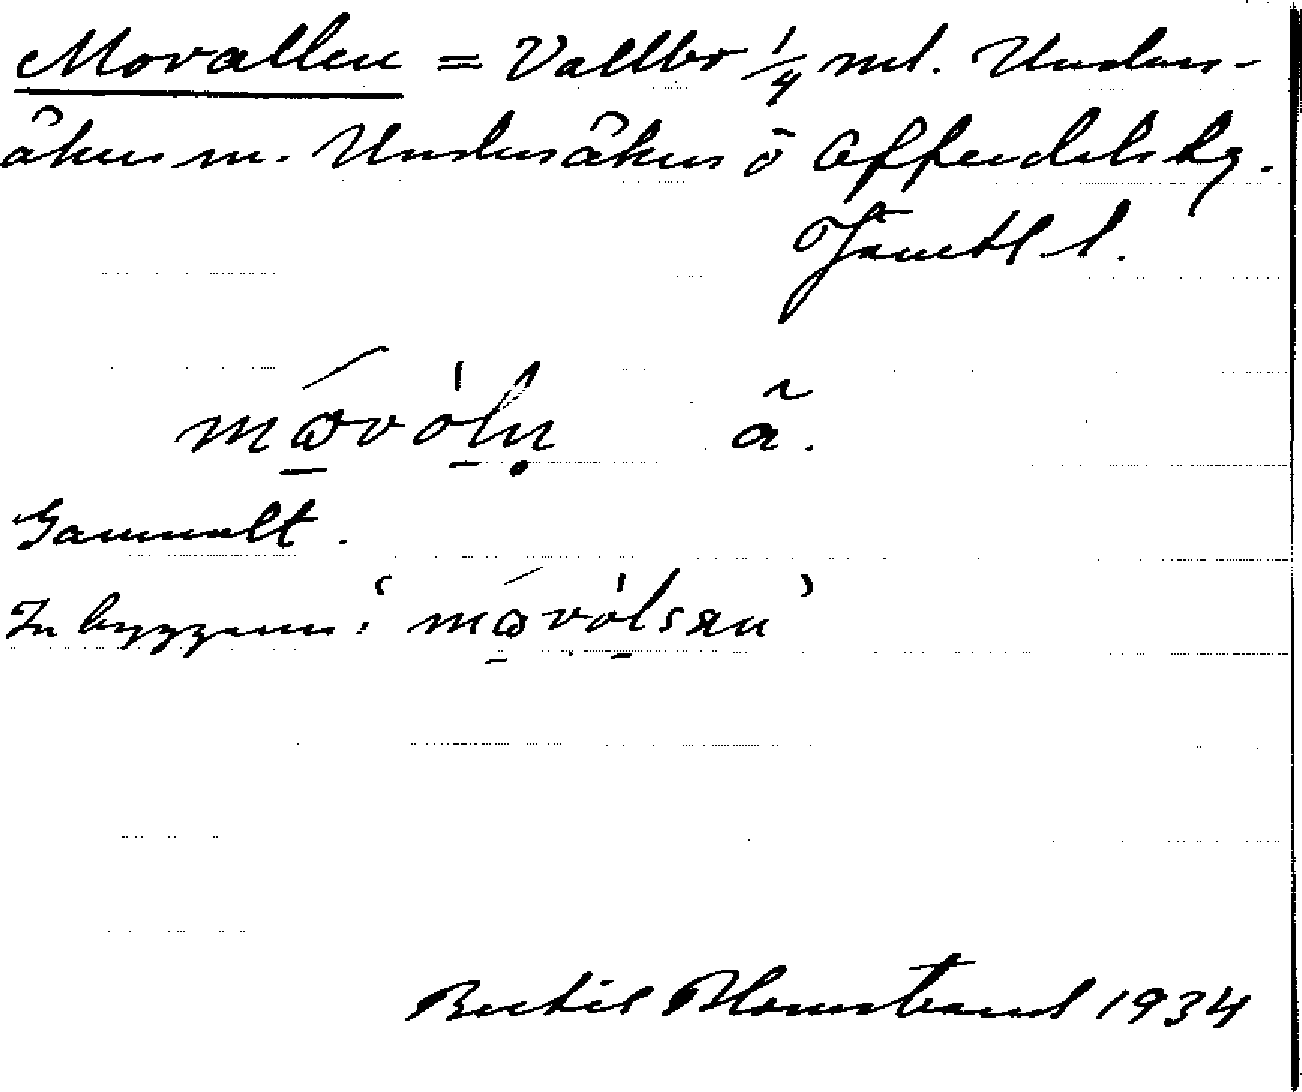 Movallen = Vallbo 1/4 mtl. Unders-
åkers sn. Undersåkers o Offerdals tg.
Jämtl. l.
må̱vó̱lṇ ã.
Gammalt.
Inbyggarn: 'må̱vó̱lsan'
Bertil Blomstrand 1934